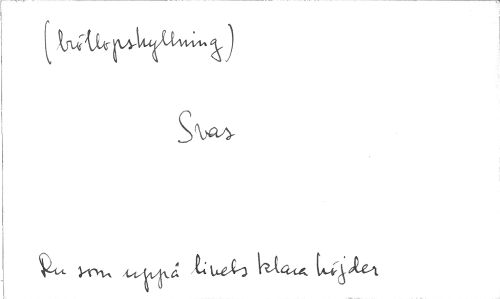 (bröllopshyllning)
Svas
Du som uppå livets klara höjder